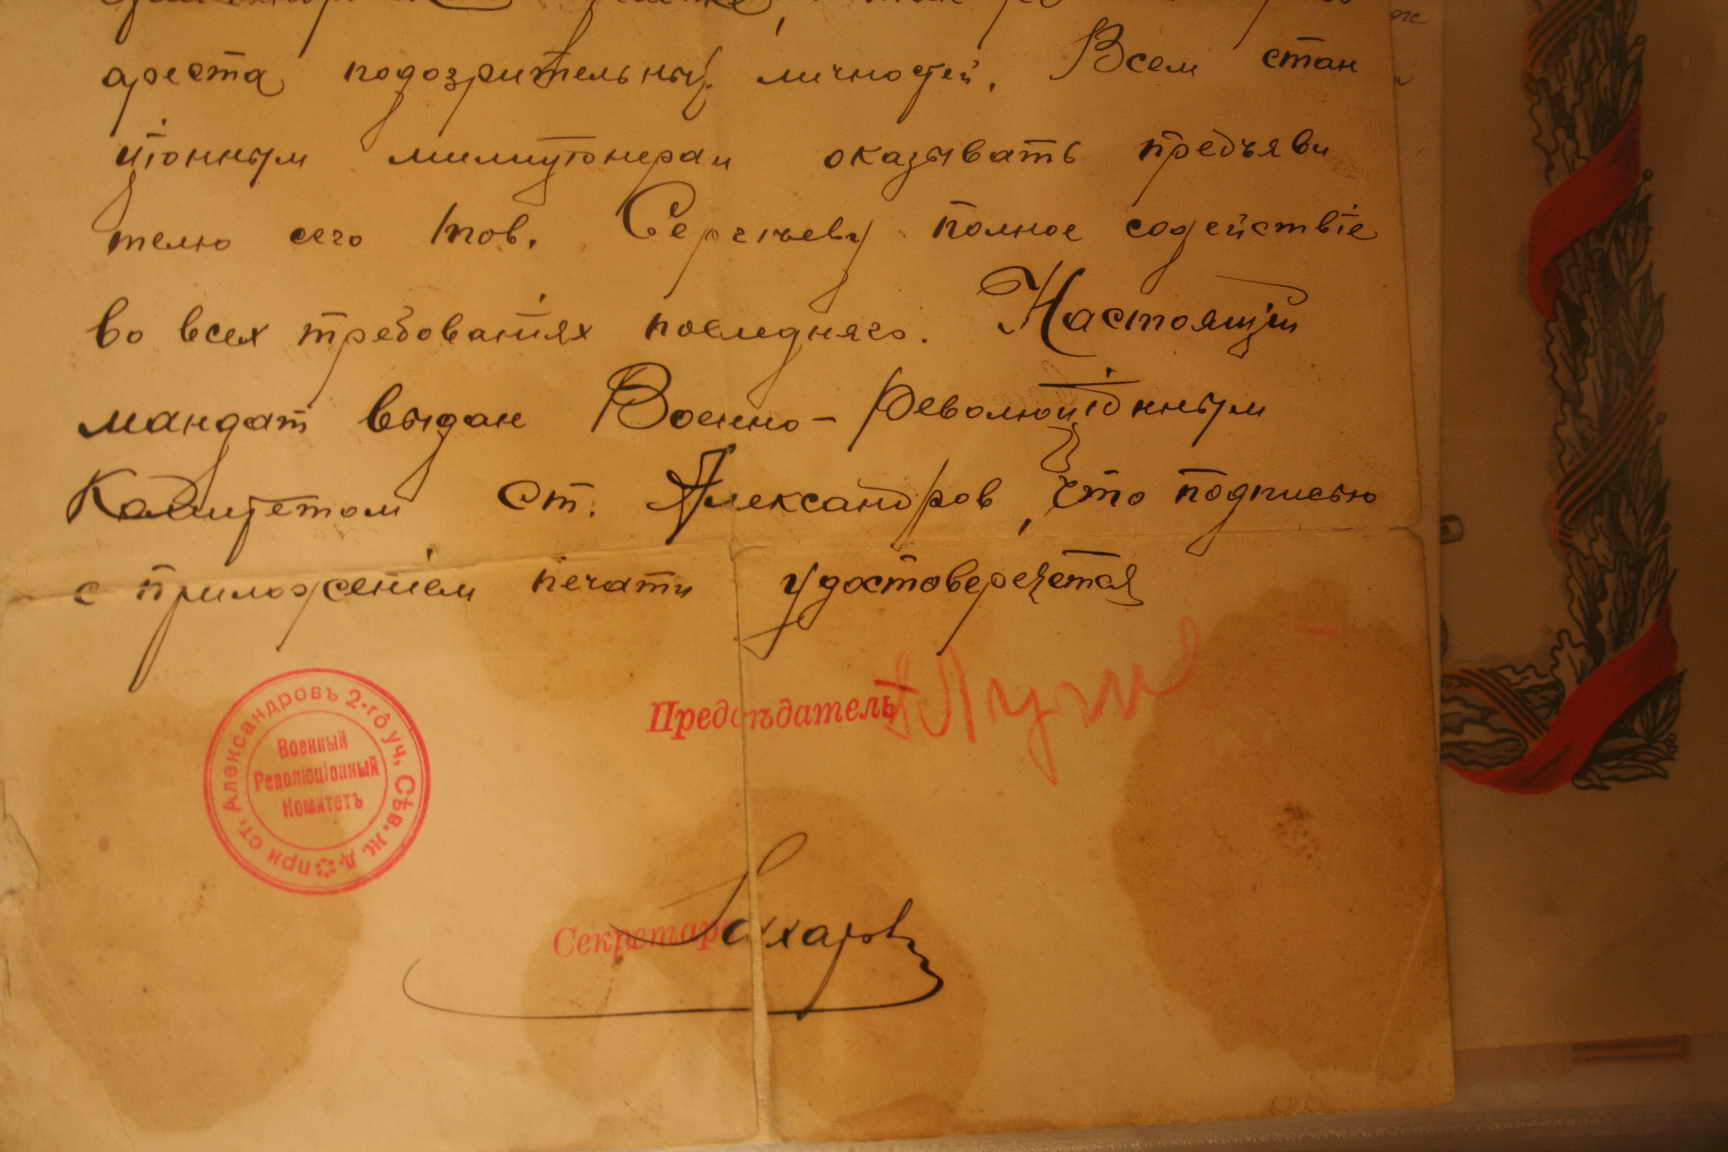 ареста подозрительных личностей. Всем стан
ціонным милиціонерам оказывать предъяви
телю сего тов. Сергѣеву полное содействіе
во всех требованіях последняго. Настоящий
мандат выдан Военно-Революціонным
Комитетом ст. Александров, что подписью
с приложеніем печати удостоверяется
Предсѣдатель
при ст. Александровъ 2-го уч. Сѣв. ж. д.
Военный
Революціонный
Комитетъ
Секретарь Захаров